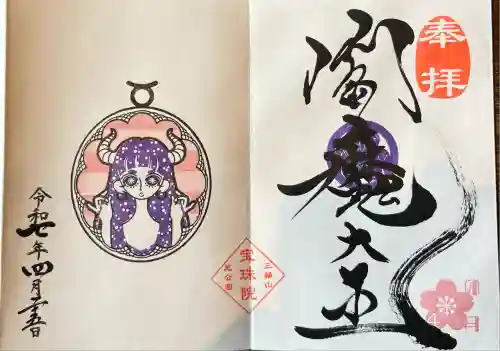 奉拝
閻魔大王
三縁山
宝珠院
芝公園
令和七年四月